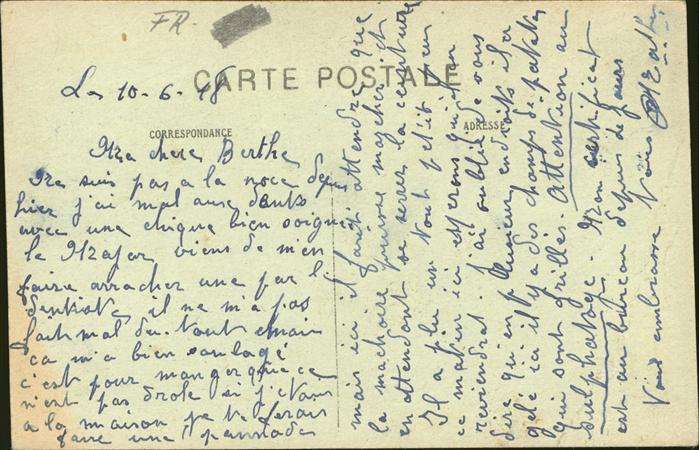 FR.
CARTE POSTALE
CORRESPONDANCE
ADRESSE
Le 10-6-18
Ma chere Berthe
Me suis pas a la noce depuis
hier j'ai mal aux dents
avec une chique bien soignée
le Major viens de m'en
faire arracher une par le
dentiste, il ne m'a pas
fait mal du tout
ça m'a bien soulagé
c'est pour manger que ce
n'est pas drole si j'etais
a la maison je te ferais
faire une pannade
mais ici il faut attendre que
la machoire pouvoir macher et
en attendant se serrer la ceinture
Il a plu un tout petit peu
ce matin ici esperons qu'il en
reviendrat. J'ai oublié de vous
dire qu'en plusieur endroits il a
gelé ici il y a des champs de patates
qui sont grillés. Attention au
sulphatage. Mon certificat
est au bureau depuis 2 jours
Vous embrasse tous